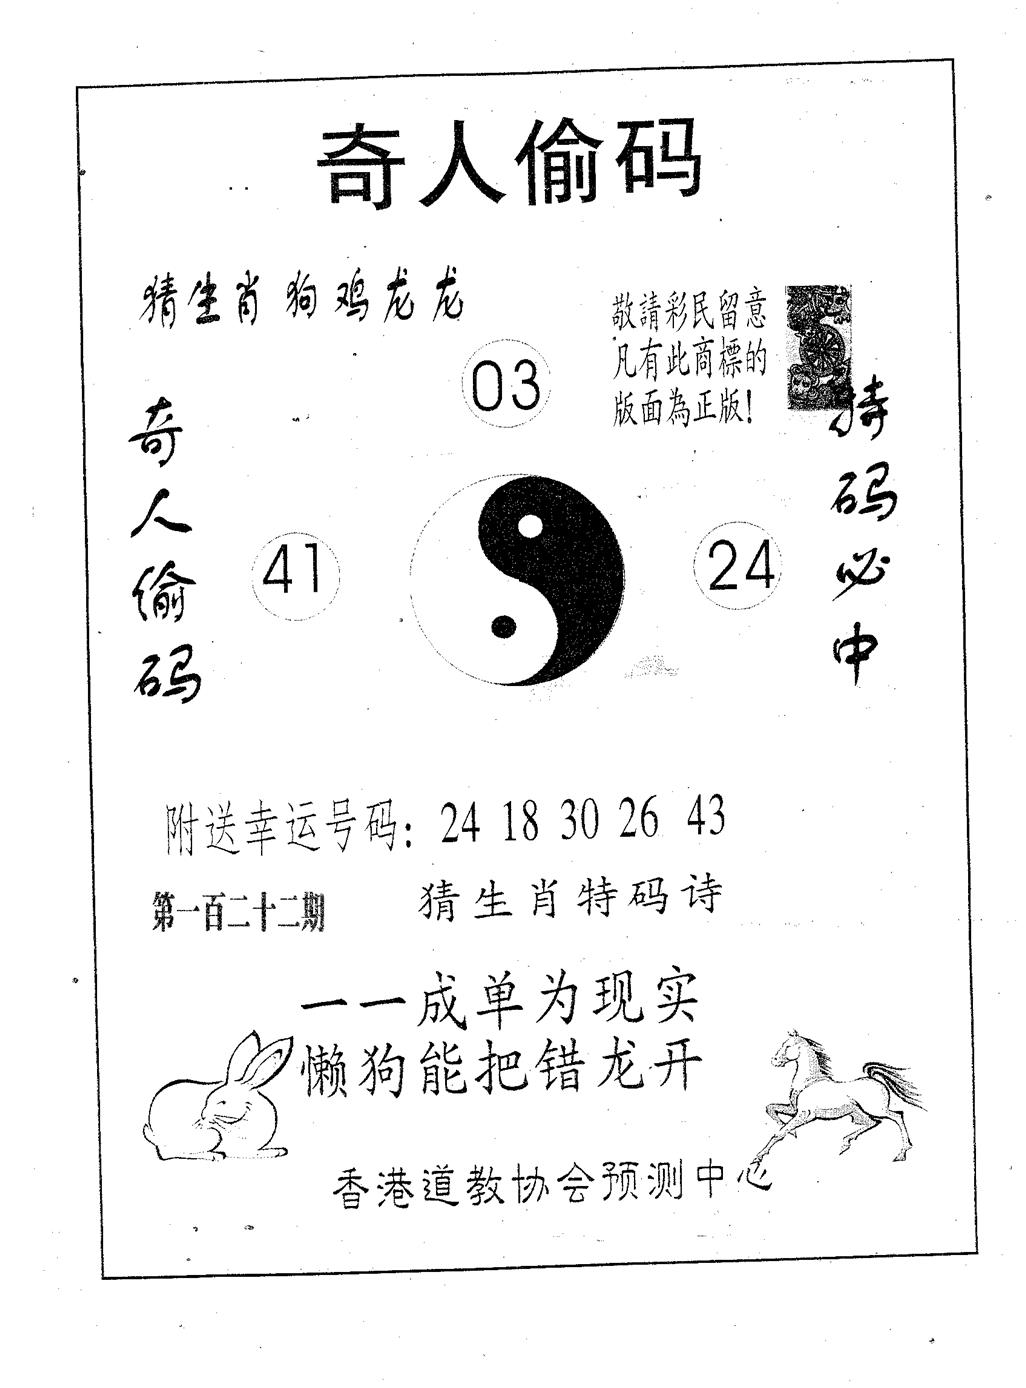 奇人偷码
猜生肖狗鸡龙龙
敬請彩民留意
凡有此商標的
版面為正版!
03
奇人偷码
特码必中
41
24
附送幸运号码: 24 18 30 26 43
第一百二十二期
猜生肖特码诗
一一成单为现实
懒狗能把错龙开
香港道教协会预测中心